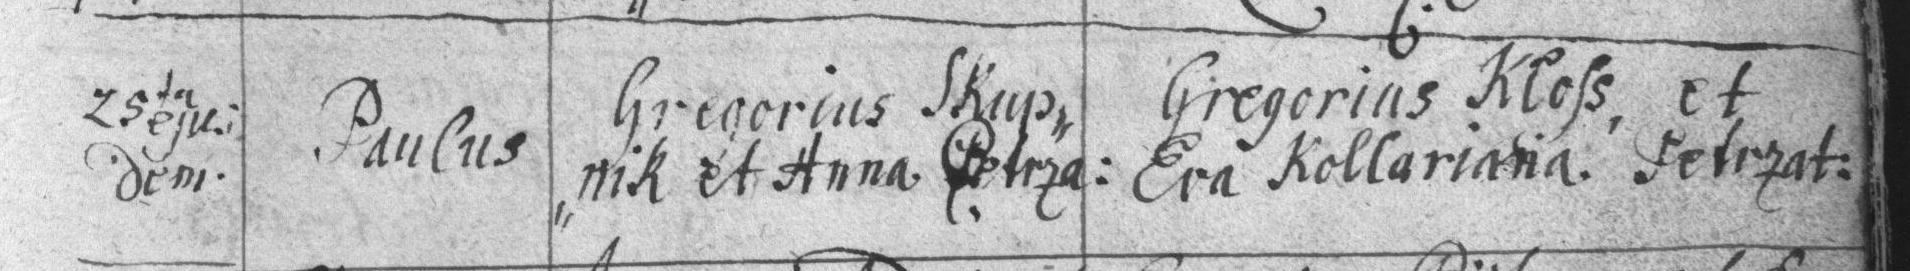 25ta eju:
dem.
Paulus
Gregorius Skup„
„nik et Anna Petrza:
Gregorius Kloss, et
Eva Kollariana. Petrzat: